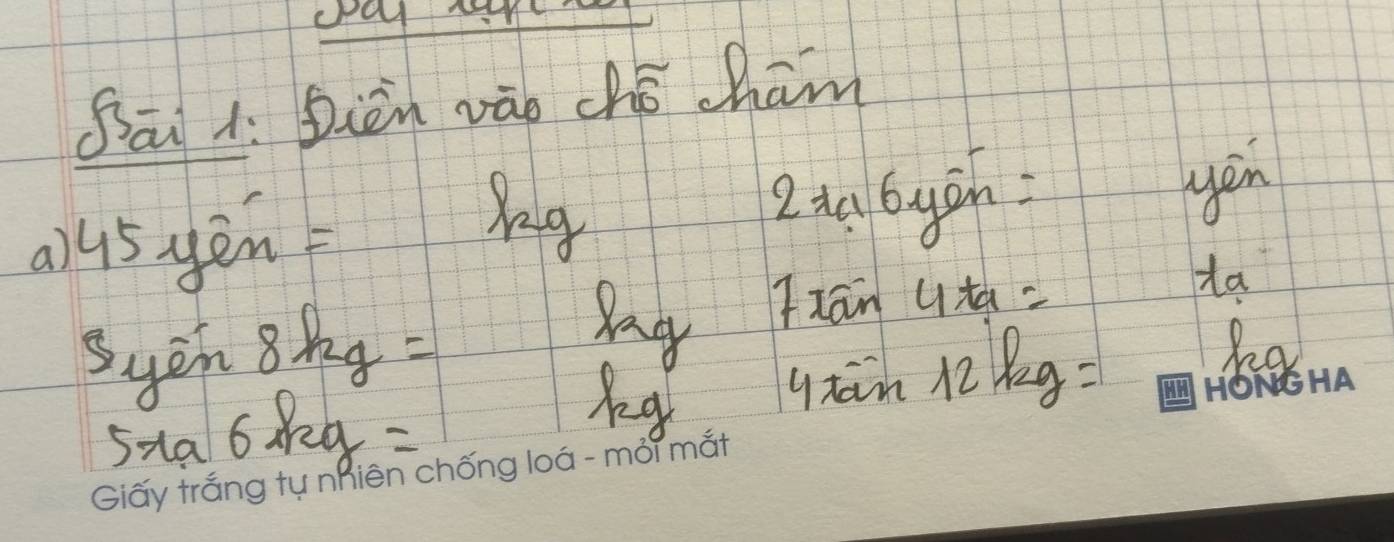 Bài 1: Điền vào chỗ chấm
a) 45 yến = kg 2 tạ 6 yến = yến
yến 8 kg = kg 7 tấn 4 tạ = tạ
5 tạ 6 kg = kg 4 tấn 12 kg = kg
HH HỒNG HÀ
Giấy trắng tự nhiên chống loá - mỏi mắt